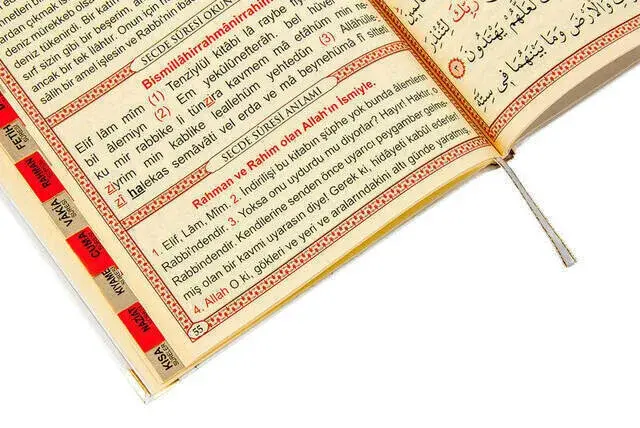 ancak bir tek ilâhtır. Onun için
sâlih bir amel işlesin ve Rabbi'nin ibad
SECDE SÛRESİ OKUN
Bismillâhirrahmânirrahîm
Elif lâm mîm (1) Tenzîylül kitâbi lâ raybe
bil âlemiyn (2) Em yekûlûnefterâh. bel hüvel
ku mir rabbike li tünzira kavmem mâ etâhüm min
ziyrim min kablike leallehüm yehtedûn (3) Allâhülle
zi halekas semâvâti vel erda ve mâ beynehümâ fî sitteti
SECDE SÛRESİ ANLAMI
Rahman ve Rahim olan Allah'ın İsmiyle.
1. Elif, Lâm, Mîm. 2. İndirilişi bu kitabın şüphe yok bunda âlemlerin
Rabbi'ndendir. 3. Yoksa onu uydurdu mu diyorlar? Hayır! Haktır, o
Rabbindendir. Kendilerine senden önce uyarıcı peygamber gelme-
miş olan bir kavmi uyarasın diye! Gerek ki, hidâyeti kabûl ederler!
4. Allah O ki, gökleri ve yeri ve aralarındakini altı günde yaratmış,
55
FETİH
RAHMAN
VAKIA
CUMA
KIYAME
NAZİAT
KISA
SURELER
لَعَلَّهُمْ يَهْتَدُونَ
وَالْأَرْضَ وَمَا بَيْنَهُمَا فِي سِتَّةِ